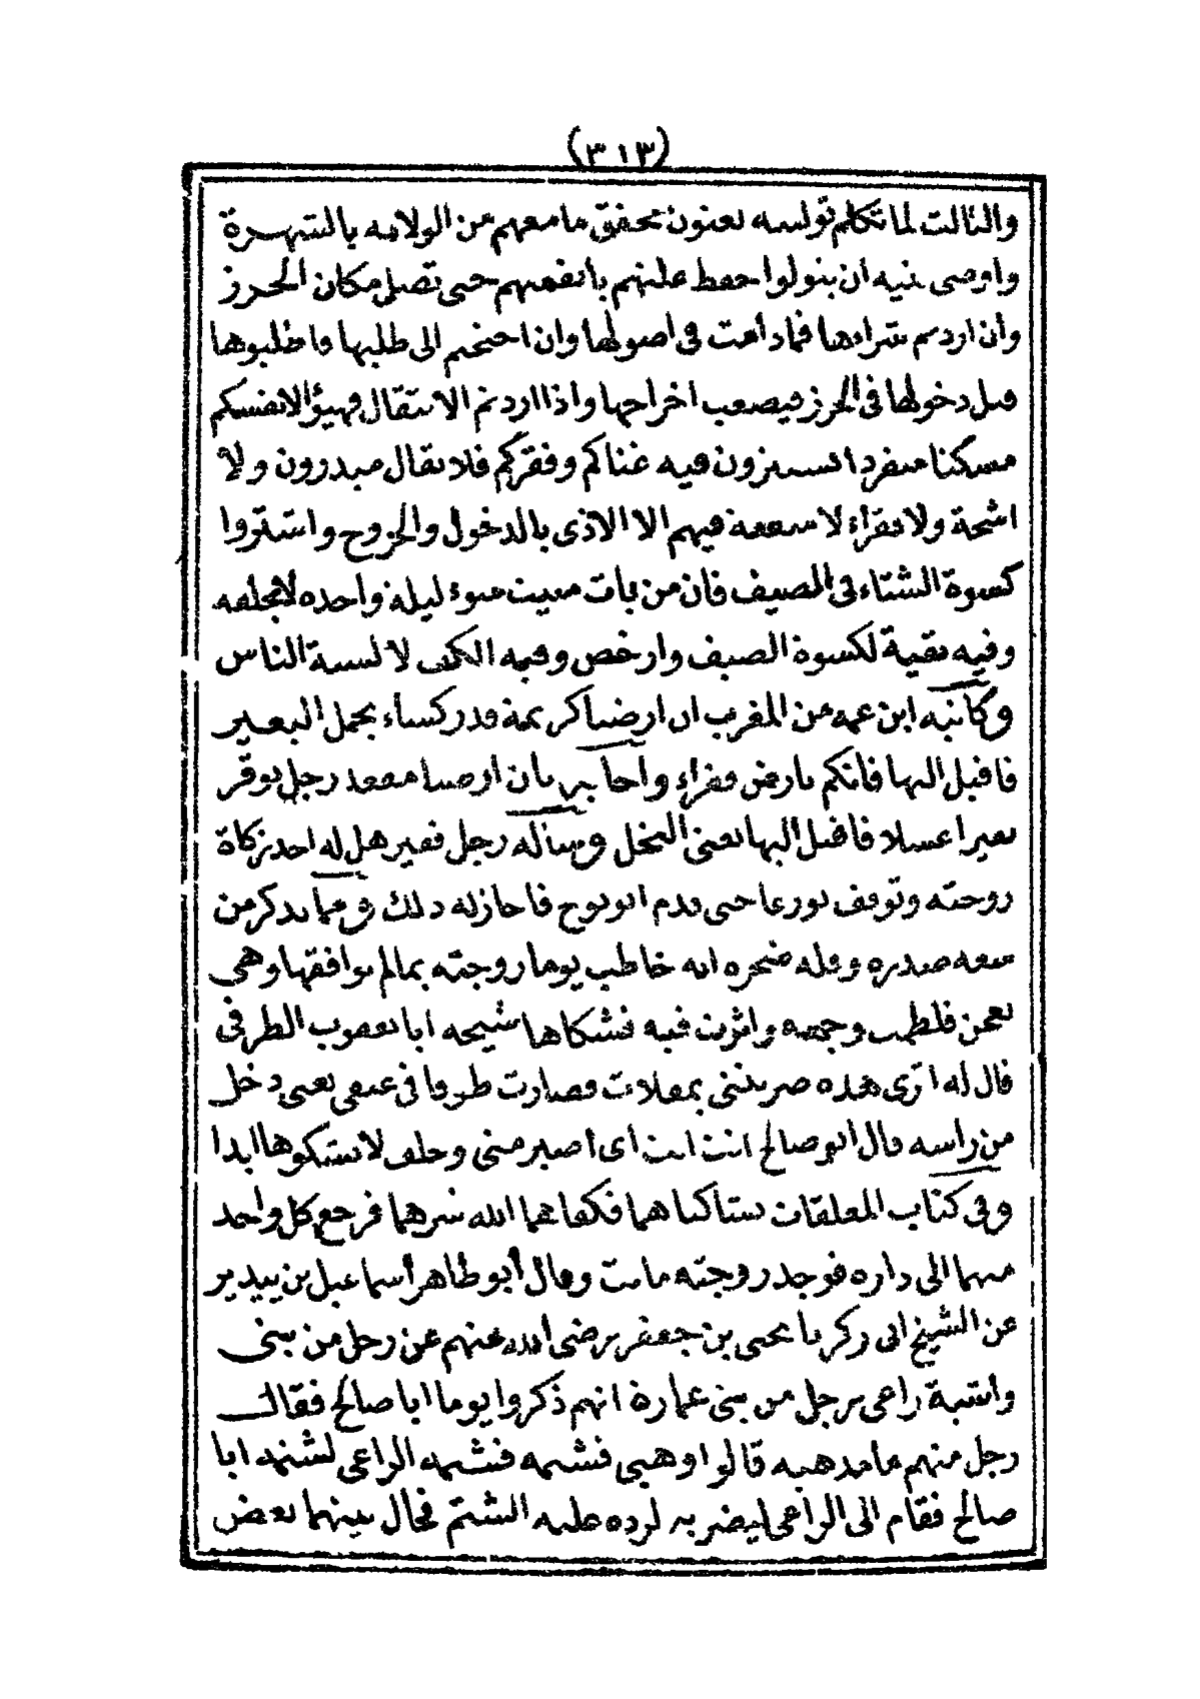 (٣١٣)
والثالث لما تكلم توليته يعنون تحقق ما معهم من الولاية بالشهرة
واوصى بنيه ان يتولوا حفظ غلتهم بأنفسهم حتى تصل مكان الحرز
وأن اردتم شراءها فما دامت في اصولها وان احتجتم الى طلبها فاطلبوها
قبل دخولها في الحرز فيصعب اخراجها واذا اردتم الانتقال فهيؤا لانفسكم
مسكنا منفردا تسترون فيه غناكم وفقركم فلا يقال مبذرون ولا
اشحة ولا فقراء لا منفعة فيهم الا الاذى بالدخول والخروج واشتروا
كسوة الشتاء في المصيف فان من بات مبيت سوء ليلة واحدة لا تخلفه
وفيه بقية لكسوة الصيف وارخص وقيمة الكبش لا لسنة الناس
وكاتبه ابن عمه من المغرب ان ارضنا كريمة قدر كساء بحمل البعير
فاقبل اليها فانكم بارض فقراء وأجابه بان ارضنا مقعد رجل يوقر
بعيرا عسلا فاقبل اليها يعني النخل وسأله رجل فقير هل له اخذ زكاة
زوجته وتوقف تورعا حتى قدم ابو نوح فاجاز له ذلك ومما يذكر من
سعة صدره وقلة ضجره انه خاطب يوما زوجته بما لم يوافقها وهي
تعجن فلطمت وجهه واثرت فيه فشكاها شيخه ابا يعقوب الطرفي
قال له اترى هذه ضربتني بمقلات فصارت طوقا في عنقي يعني دخل
من راسه قال ابو صالح انت انت اى أصبر مني وحلف لا يشكوها ابدا
وفي كتاب المعلقات تشاكيا هما فكفاهما الله شرهما فرجع كل واحد
منهما الى داره فوجد زوجته ماتت وقال أبو طاهر أسماعيل بن ييدير
عن الشيخ ابى زكريا يحيى بن جعفر رضى الله عنهم عن رجل من بنى
وانتبة راعى رجل من بنى عمارة انهم ذكروا يوما ابا صالح فقال
رجل منهم ما مذهبه قالوا وهبى فشتمه فشتمه الراعى لشتمه ابا
صالح فقام الى الراعى ليضربه لرده عليه الشتم فحال بينهما بعض